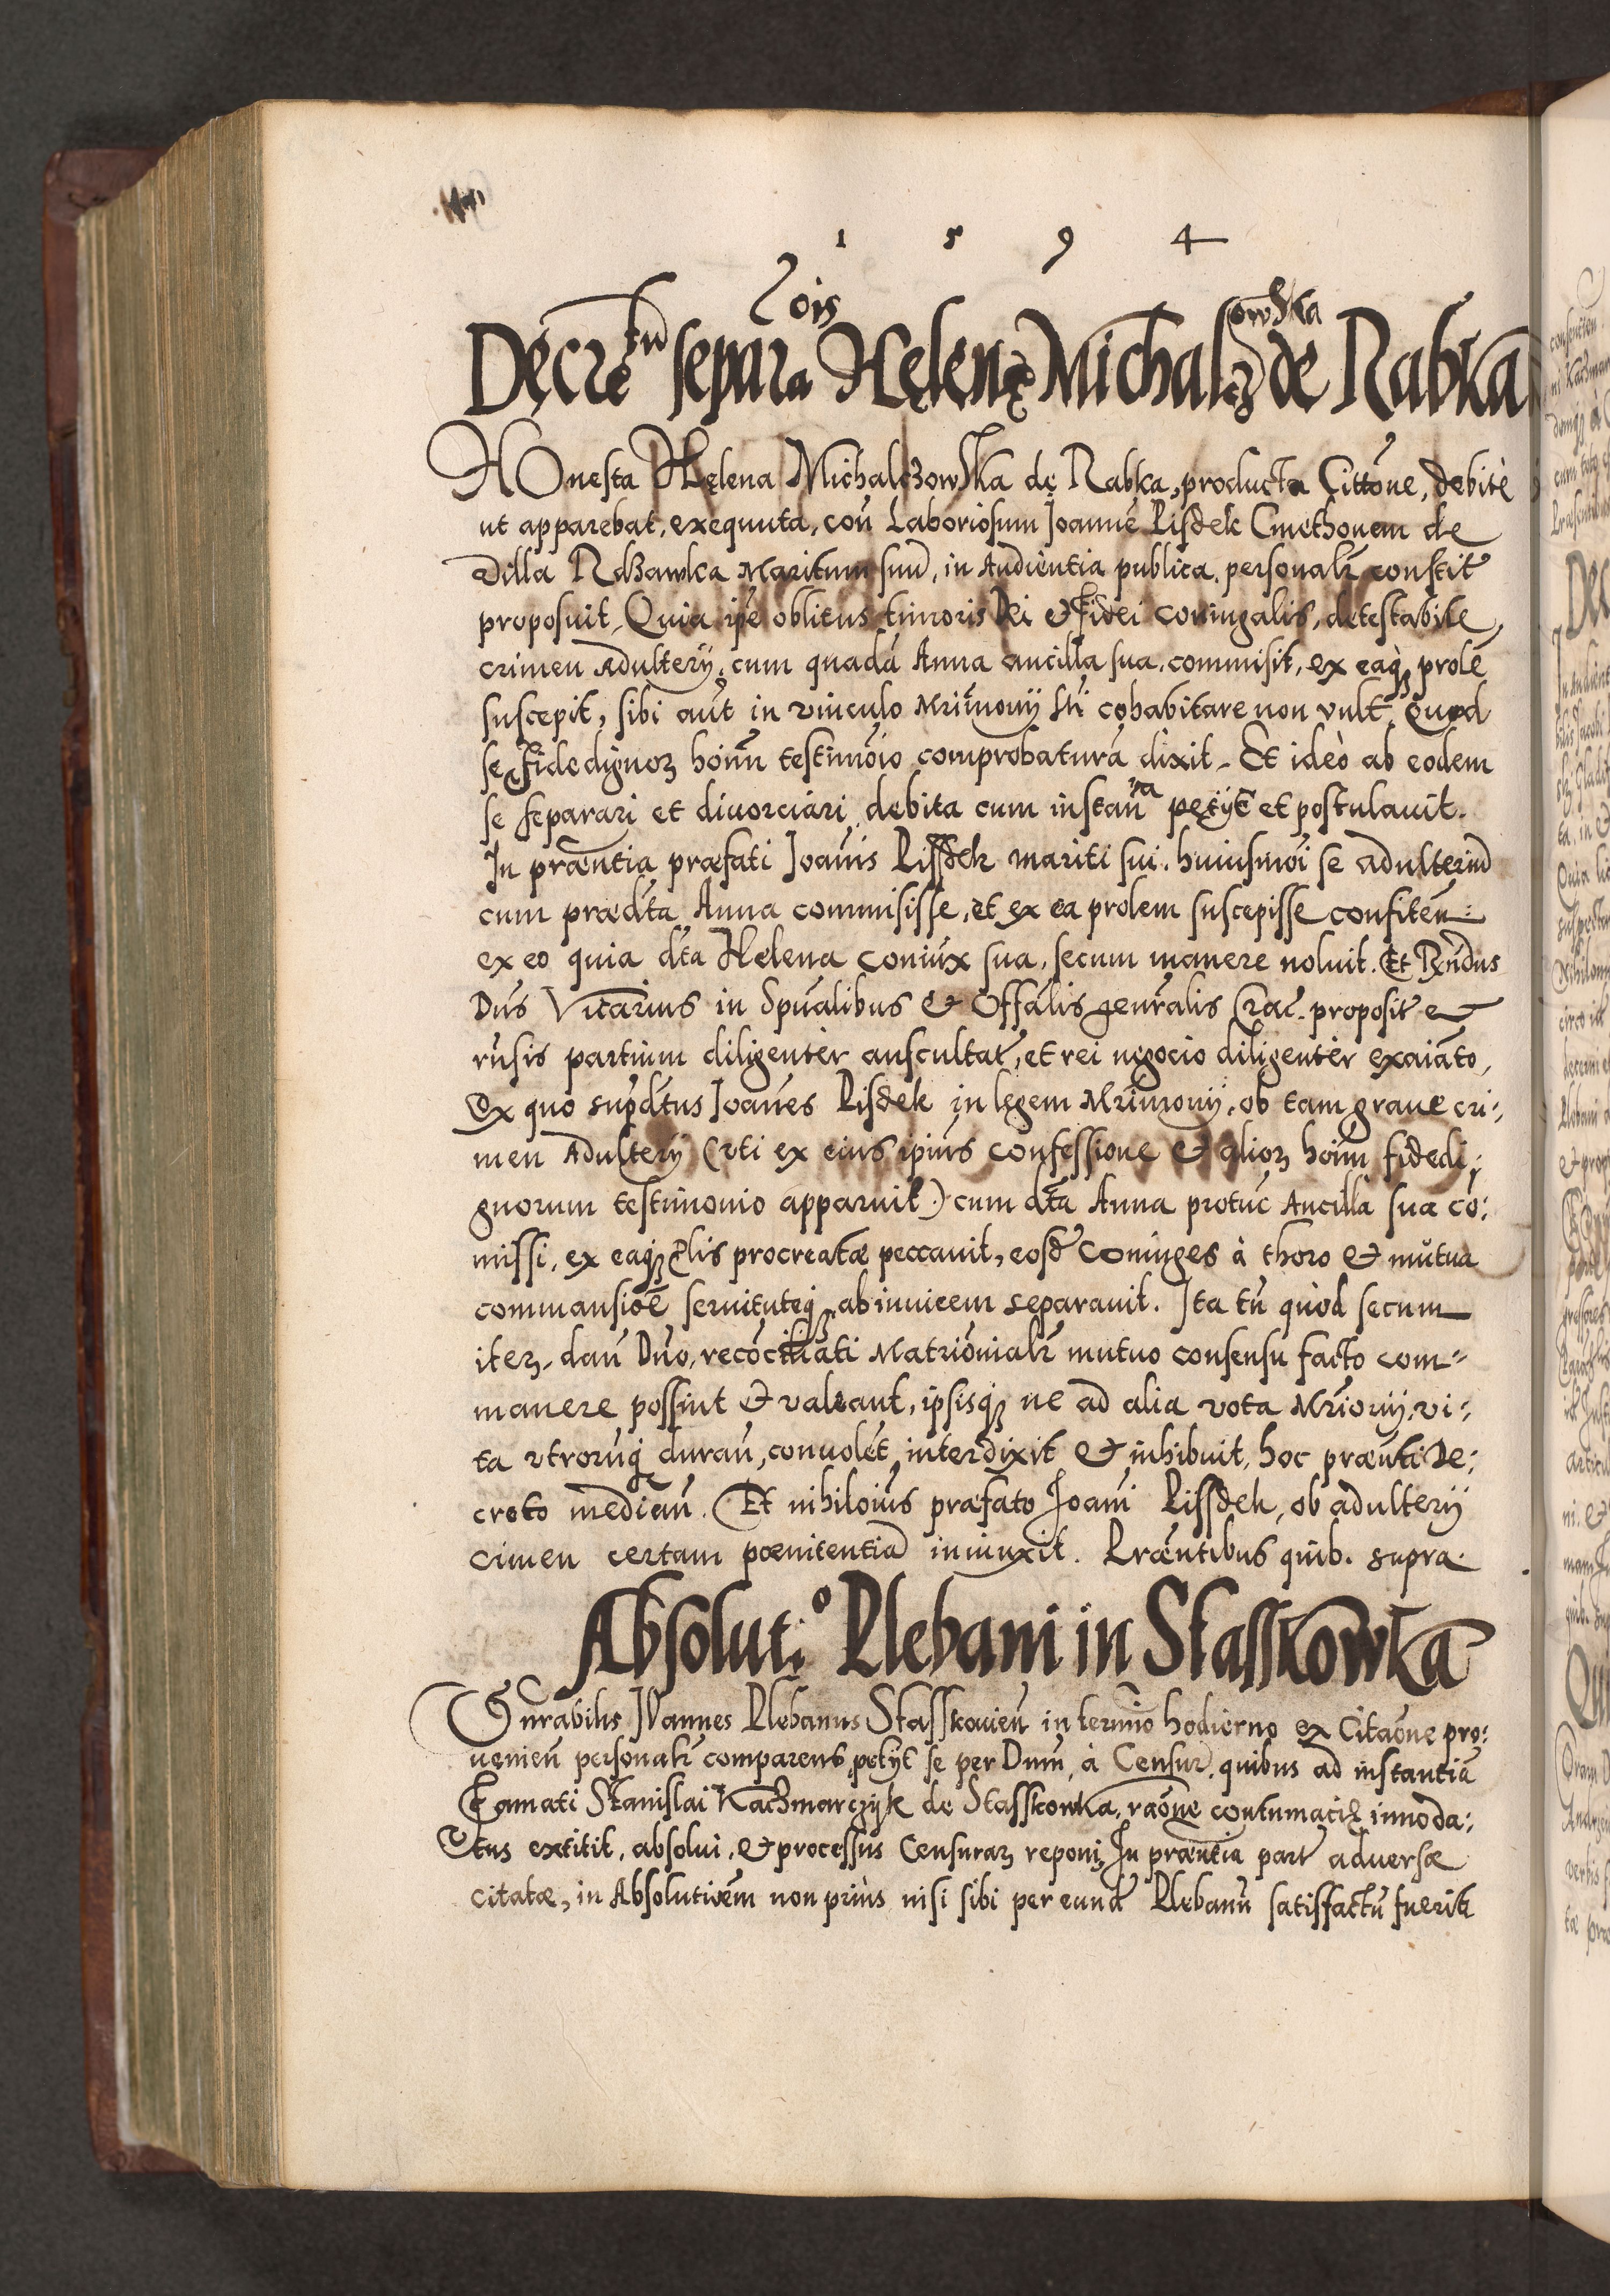 1 5 9 4
Decretū separaōis Helenę Michalczowska de Rabka
HOnesta Helena Michalczowska de Rabka, producta Cittōne, debitè
ut apparebat, exequuta, con̄ Laboriosum Joannē Pisdek Cmethonem de
Villa Rdzawka Maritum suū, in Audientia publica, personalr̄ constit̄
proposuit, Quia ip̄e oblitus timoris Dei et Fidei coniugalis, detestabile
crimen adulterÿ, cum quadā Anna ancilla sua commisit, ex eaq₃ prolē
suscepit, sibi aut̄ in vinculo Mr̄imonÿ cohabitare non vult, Quod
se fide dignoꝝ hoīnū testimōio comprobaturā dixit. Et ideò ab eodem
se separari et divorciari debita cum instan̄ᵗⁱᵃ petÿt et postulavit.
In præntia præfati Joānis Pissdek mariti sui, huiusmōi se adulteriū
cum prædt̄a Anna commisisse, et ex ea prolem suscepisse confiten̄:
ex eo quia dt̄a Helena coniux sua, secum manere noluit. Et Rn̄dus
Dn̄s Vicarius in Spūalibus et Offālis gen̄ralis Crac. proposit̄ et
rūsis partium diligenter auscultat̄, et rei negocio diligenter exaīato,
Ex quo supdt̄us Joānes Pisdek in legem Mr̄imonÿ, ob tam graue cri:
men Adulterÿ (vti ex eius ip̄ius confessione et alioꝝ hoīm fidedi:
gnorum testimonio apparuit) cum dt̄a Anna protūc Ancilla sua cō:
missi, ex eaq₃ p̄lis procreatæ peccauit, eosd̄ Coniuges à thoro et mutua
commansiōe seruituteq₃ ab inuicem separauit. Ita tn̄ quòd secum
iteꝝ, dan̄ Dn̄o, recōciliati Matriōnialr̄ mutuo consensu facto com=
manere possint et valeant, ipsisq₃ ne ad alia vota Mr̄ionÿ, vi:
ta vtrorūq₃ duran̄, conuolēt, interdixit et inhibuit, hoc præn̄ti De:
creto median̄. Et nihilōius præfato Joāni Pissdek, ob adulterÿ
cimen certam pœnitentiā iniunxit. Præn̄tibus quib. supra.
Absolut.º Plebani in Stasskowka
Vn̄rabilis JOannes Plebanus Stasskouien̄ in termīo hodierno ex Citaōne pro:
uenien̄ personalr̄ comparens, petÿt se per Dn̄m, à Censur̄ quibus ad instantiā
Famati Stanislai Kaczmarczyk de Stasskowka, raōne contumaciæ innoda:
tus extitit, absolui, et processus Censuraꝝ reponi. In præntia part̄ adversæ
citatæ, in Absolutiōem non priùs nisi sibi per eund̄ Plebanū satisfactū fuerit